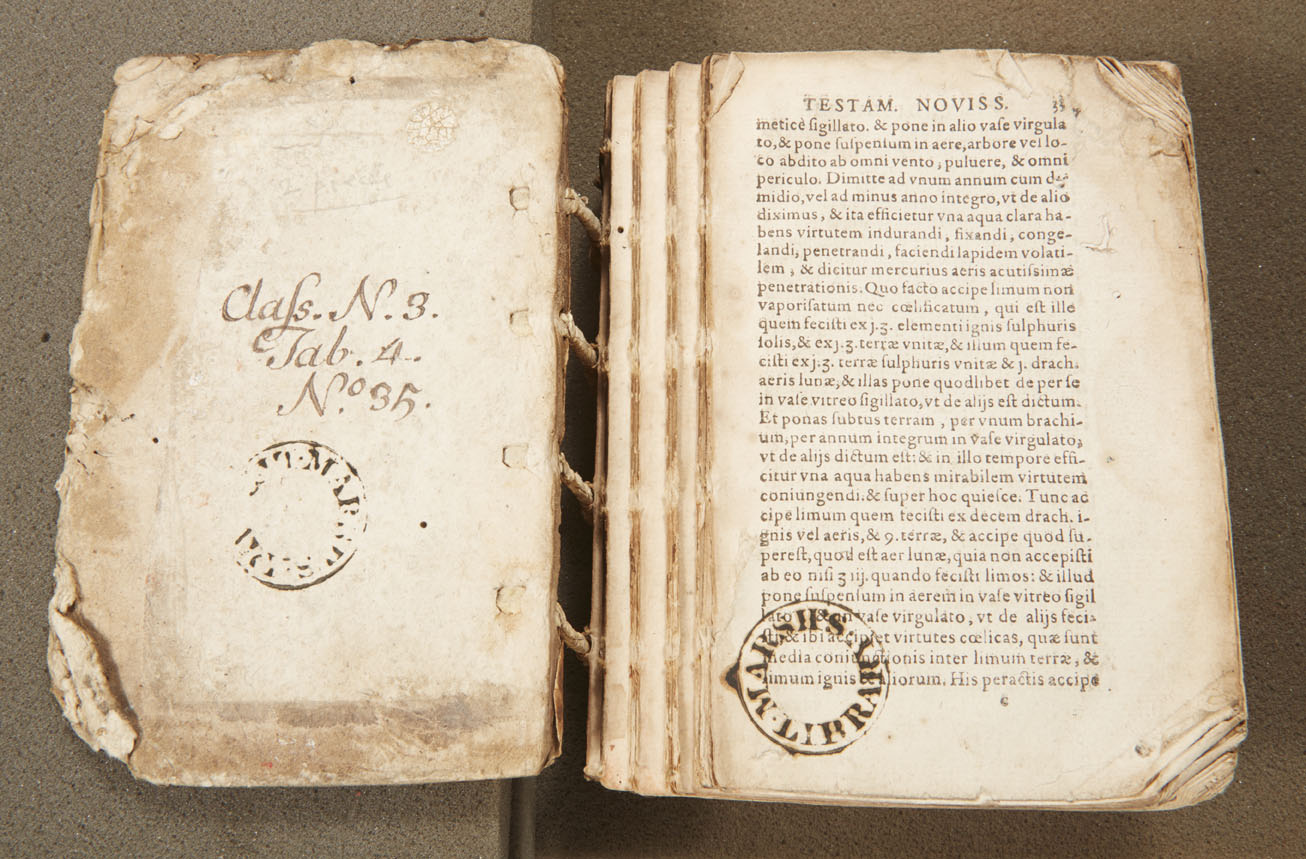 Claſs. N. 3.
Tab. 4.
N.o 35.
TESTAM. NOVISS. 33
meticè ſigillato. & pone in alio vaſe virgula
to, & pone ſuſpenſum in aere, arbore vel lo-
co abdito ab omni vento, puluere, & omni
periculo. Dimitte ad vnum annum cum de
midio, vel ad minus anno integro, vt de alio
diximus, & ita efficietur vna aqua clara ha-
bens virtutem indurandi, fixandi, conge-
landi, penetrandi, faciendi lapidem volati-
lem, & dicitur mercurius aeris acutiſsimæ
penetrationis. Quo facto accipe limum non
vaporiſatum nec cœlificatum, qui eſt ille
quem feciſti ex j.ʒ. elementi ignis ſulphuris
ſolis, & ex j.ʒ. terræ vnitæ, & illum quem fe-
ciſti ex j.ʒ. terræ ſulphuris vnitæ & j. drach.
aeris lunæ, & illas pone quodlibet de per ſe
in vaſe vitreo ſigillato, vt de alijs eſt dictum.
Et ponas ſubtus terram, per vnum brachi-
um, per annum integrum in vaſe virgulato,
vt de alijs dictum eſt: & in illo tempore effi-
citur vna aqua habens mirabilem virtutem
coniungendi. & ſuper hoc quieſce. Tunc ac
cipe limum quem feciſti ex decem drach. i-
gnis vel aeris, & 9. terræ, & accipe quod ſu-
pereſt, quod eſt aer lunæ, quia non accepiſti
ab eo niſi ʒ iij. quando feciſti limos: & illud
pone ſuſpenſum in aerem in vaſe vitreo ſigil
lato, & in vaſe virgulato, vt de alijs feci-
ſti, & ibi accipiet virtutes cœlicas, quæ ſunt
media coniunctionis inter limum terræ, &
limum ignis & aliorum. His peractis accipe
c
MARSH'S LIBRARY